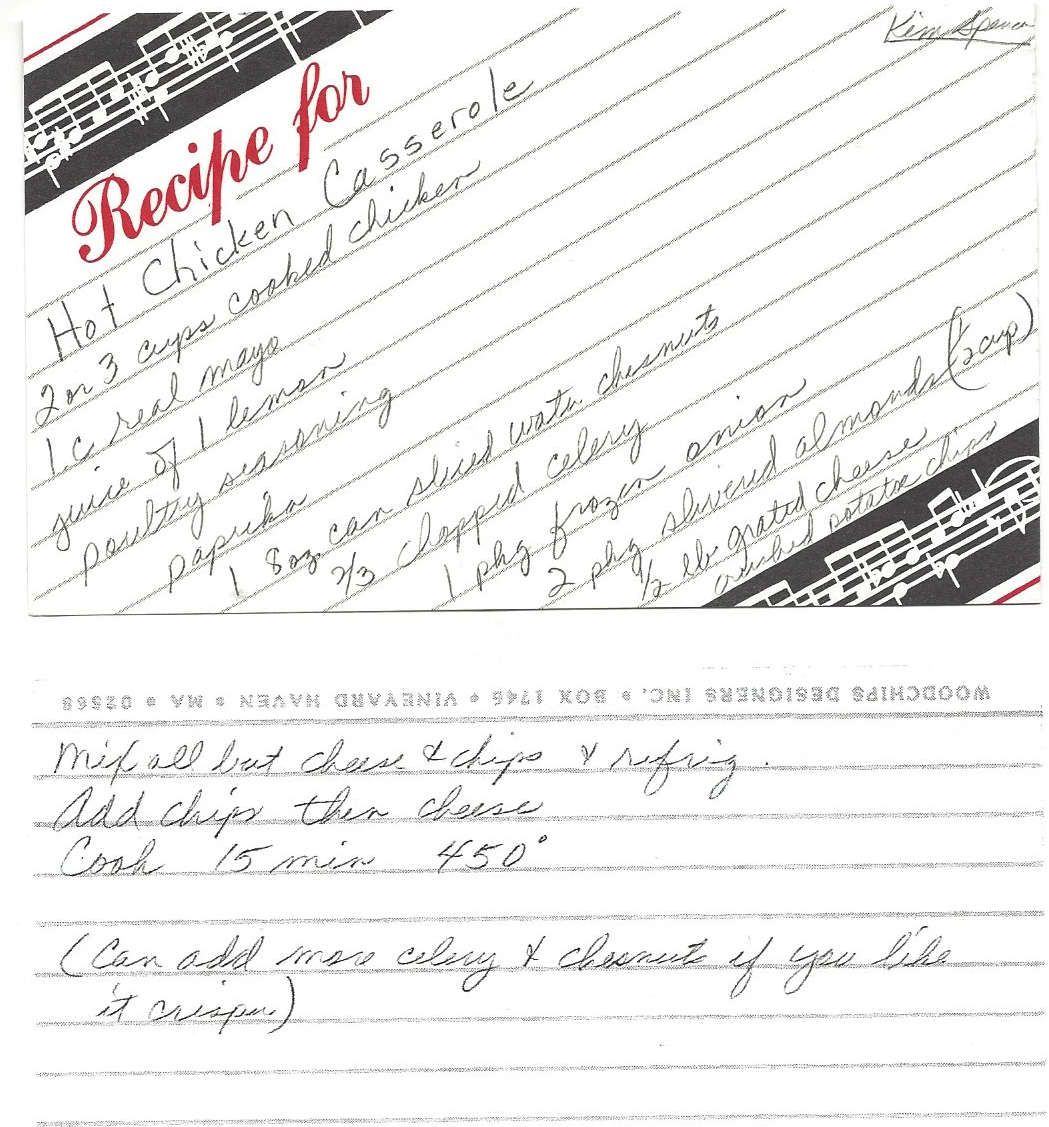 Kim Spence
Recipe for
Hot Chicken Casserole
2 or 3 cups cooked chicken
1 c real mayo
juice of 1 lemon
poultry seasoning
paprika
1 8 oz can sliced water chesnuts
2/3 chopped celery
1 pkg frozen onion
2 pkg slivered almonds (1/2 cup)
1/2 lb grated cheese
crushed potatoe chips
WOODCHIPS DESIGNERS INC. • BOX 1746 • VINEYARD HAVEN • MA • 02568
Mix all but cheese & chips & refrig.
Add chips then cheese
Cook 15 min 450°
(Can add more celery & chesnuts if you like
it crisper)